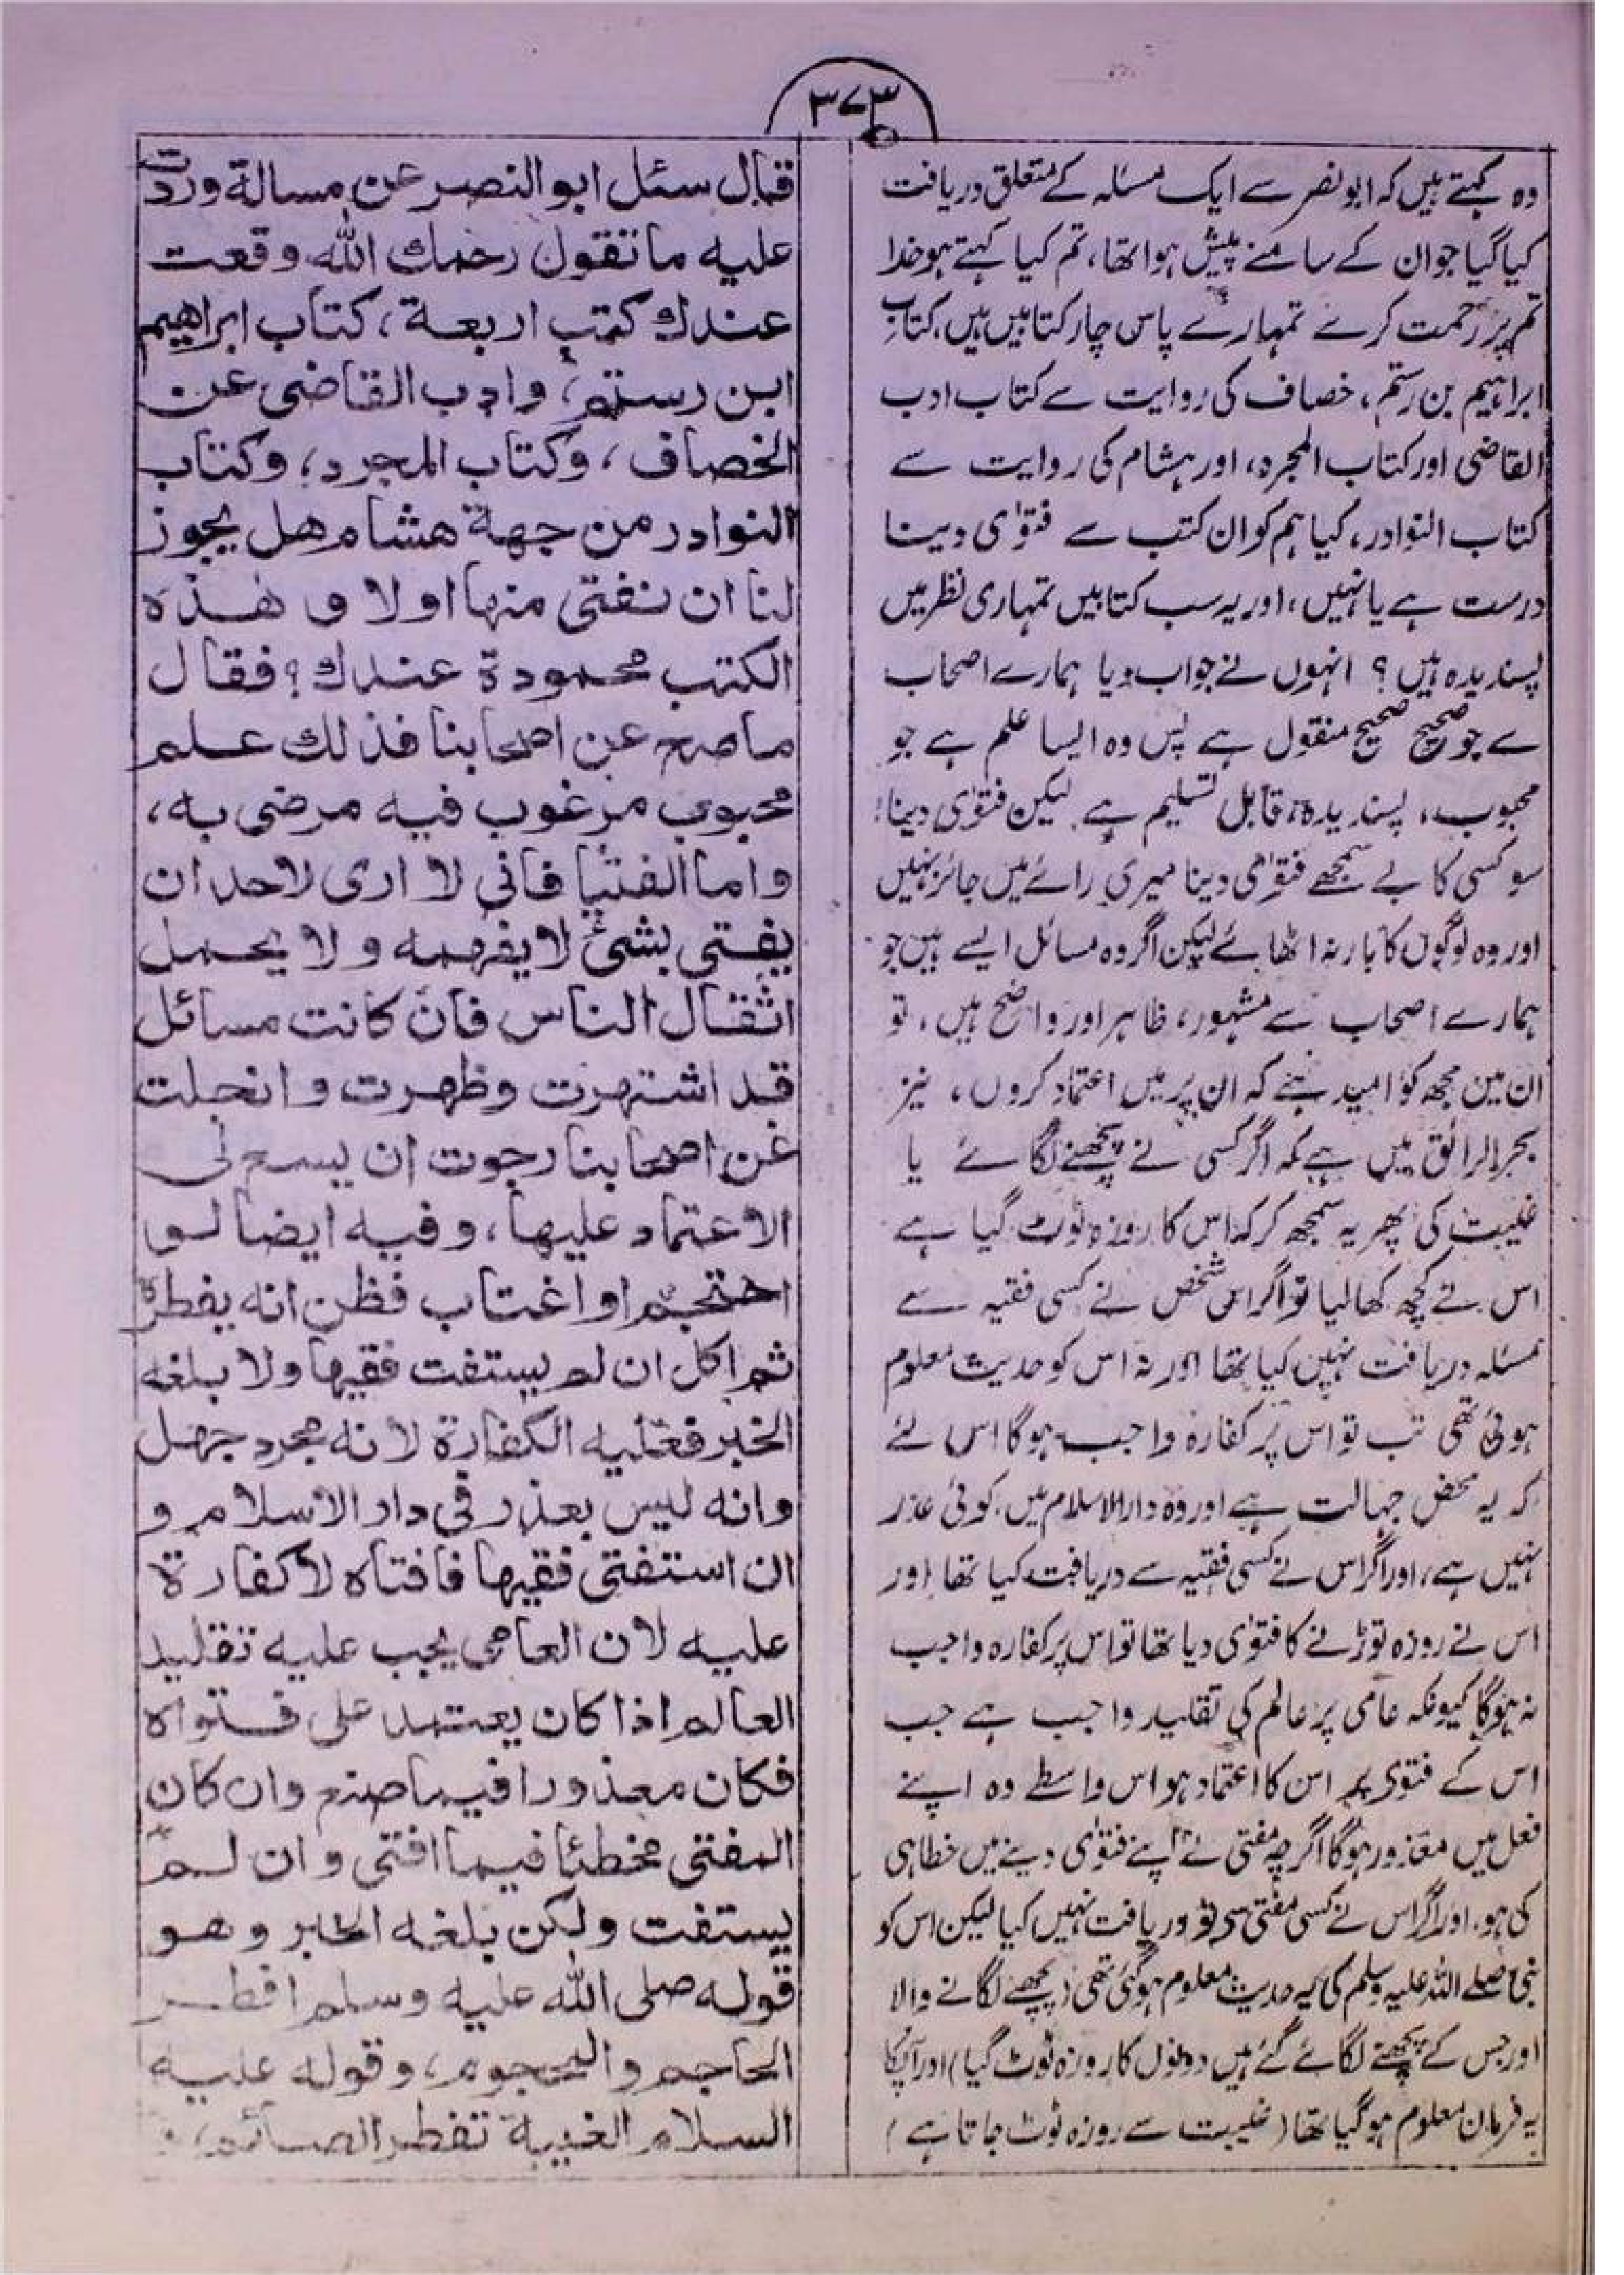 ۳۷۳
وہ کہتے ہیں کہ ابو نصر سے ایک مسئلہ کے متعلق دریافت
کیا گیا جو ان کے سامنے پیش ہوا تھا، تم کیا کہتے ہو خدا
تم پر رحمت کرے تمہارے پاس چار کتابیں ہیں، کتاب
ابراہیم بن رستم، خصاف کی روایت سے کتاب ادب
القاضی اور کتاب المجرد، اور ہشام کی روایت سے
کتاب النوادر، کیا ہم کو ان کتب سے فتوٰی دینا
درست ہے یا نہیں، اور یہ سب کتابیں تمہاری نظر میں
پسندیدہ ہیں؟ انہوں نے جواب دیا ہمارے اصحاب
سے جو صحیح صحیح منقول ہے پس وہ ایسا علم ہے جو
محبوب، پسندیدہ، قابل تسلیم ہے لیکن فتوٰی دینا؛
سو کسی کا بے سمجھے فتوٰی دینا میری رائے میں جائز نہیں
اور وہ لوگوں کا بار نہ اٹھائے لیکن اگر وہ مسائل ایسے ہیں جو
ہمارے اصحاب سے مشہور، ظاہر اور واضح ہیں، تو
ان میں مجھ کو امید ہے کہ ان پر میں اعتماد کروں، نیز
بحر الرائق میں ہے کہ اگر کسی نے پچھنے لگائے یا
غیبت کی پھر یہ سمجھ کر کہ اس کا روزہ ٹوٹ گیا ہے
اس نے کچھ کھا لیا تو اگر اس شخص نے کسی فقیہ سے
مسئلہ دریافت نہیں کیا تھا اور نہ اس کو حدیث معلوم
ہوئی تھی تب تو اس پر کفارہ واجب ہوگا اس لئے
کہ یہ محض جہالت ہے اور وہ دار الاسلام میں کوئی عذر
نہیں ہے، اور اگر اس نے کسی فقیہ سے دریافت کیا تھا اور
اس نے روزہ توڑنے کا فتوٰی دیا تھا تو اس پر کفارہ واجب
نہ ہوگا کیونکہ عامی پر عالم کی تقلید واجب ہے جب
اس کے فتوی پر اس کا اعتماد ہو اس واسطے وہ اپنے
فعل میں معذور ہوگا اگرچہ مفتی نے اپنے فتوٰی دینے میں خطا ہی
کی ہو، اور اگر اس نے کسی مفتی سے تو دریافت نہیں کیا لیکن اس کو
نبی صلے اللہ علیہ وسلم کی یہ حدیث معلوم ہو گئی تھی (پچھنے لگانے والا
اور جس کے پچھنے لگائے گئے ہیں دونوں کا روزہ ٹوٹ گیا) اور آپ کا
یہ فرمان معلوم ہو گیا تھا (غیبت سے روزہ ٹوٹ جاتا ہے)
قال سئل ابو النصر عن مسالة وردت
عليه ما تقول رحمك الله وقعت
عندك كتب اربعة، كتاب ابراهيم
ابن رستم، وادب القاضى عن
الخصاف، وكتاب المجرد، وكتاب
النوادر من جهة هشام هل يجوز
لنا ان نفتى منها اولا و هذه
الكتب محمودة عندك؟ فقال
ما صح عن اصحابنا فذلك علم
محبوب مرغوب فيه مرضى به،
واما الفتيا فانى لا ارى لاحد ان
يفتى بشئ لا يفهمه ولا يحمل
اثقال الناس فان كانت مسائل
قد اشتهرت وظهرت وانجلت
عن اصحابنا رجوت ان يسع لى
الاعتماد عليها، وفيه ايضا لو
احتجم او اغتاب فظن انه يفطره
ثم اكل ان لم يستفت فقيها ولا بلغه
الخبر فعليه الكفارة لانه مجرد جهل
وانه ليس بعذر فى دار الاسلام و
ان استفتى فقيها فافتاه لا كفارة
عليه لان العامى يجب عليه تقليد
العالم اذا كان يعتمد على فتواه
فكان معذورا فيما صنع وان كان
المفتى مخطئا فيما افتى وان لم
يستفت ولكن بلغه الخبر وهو
قوله صلى الله عليه وسلم افطر
الحاجم والمحجوم، وقوله عليه
السلام الغيبة تفطر الصائم،